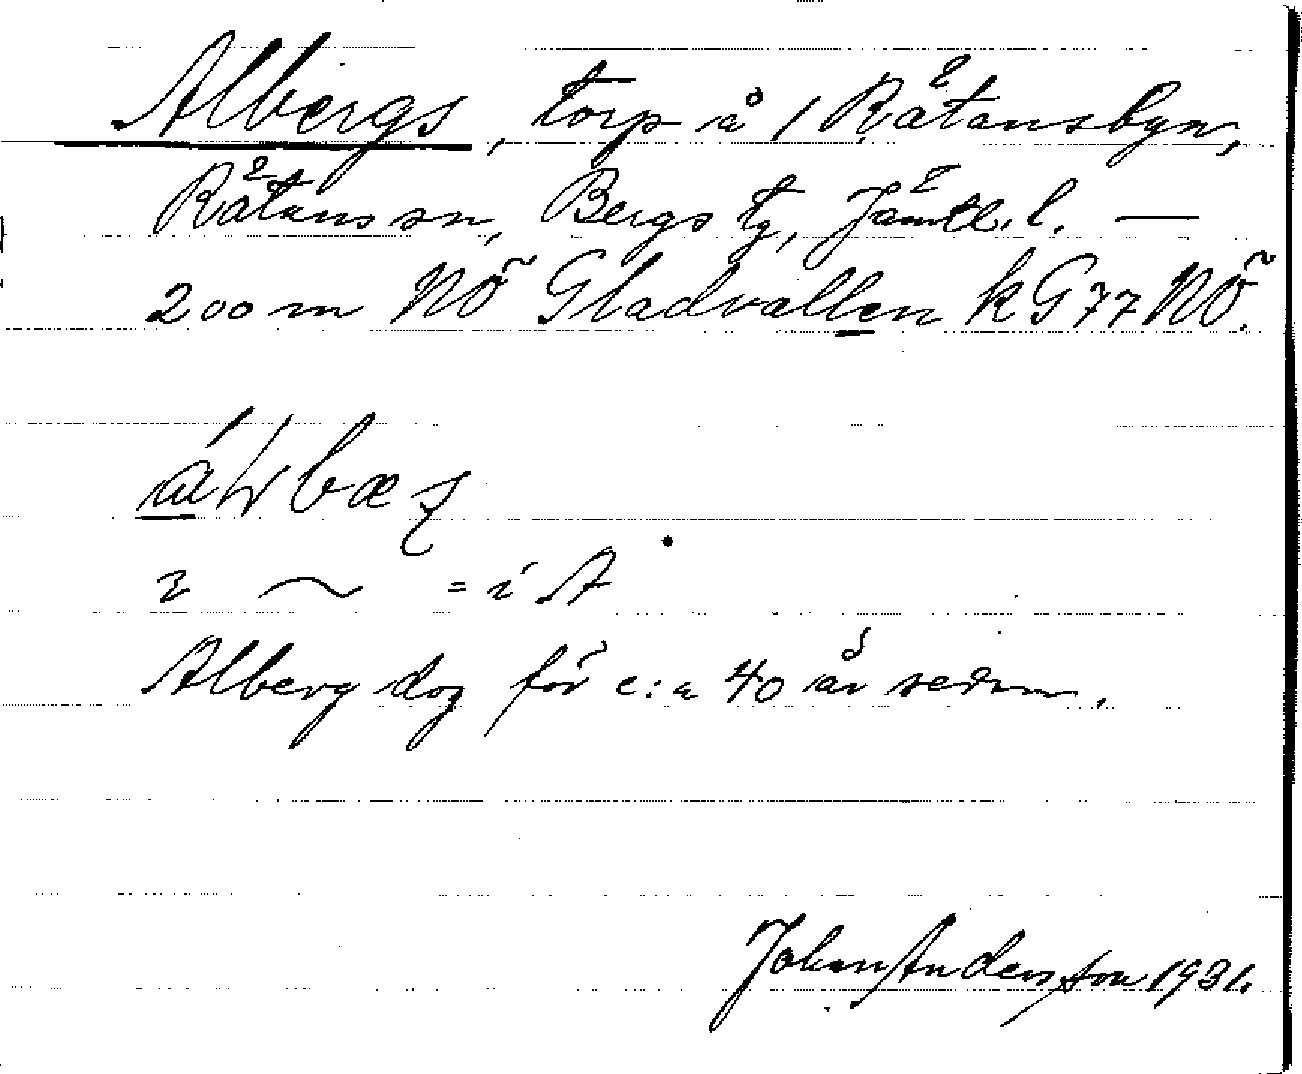 Albergs, torp å 1 Rätansbyn,
Rätans sn, Bergs tg, Jämtl. l. —
200 m NÖ Gladvallen kG77NÖ.
bæ
~ = i A
Alberg dog för c:a 40 år sedan.
Johan Andersson 1931.